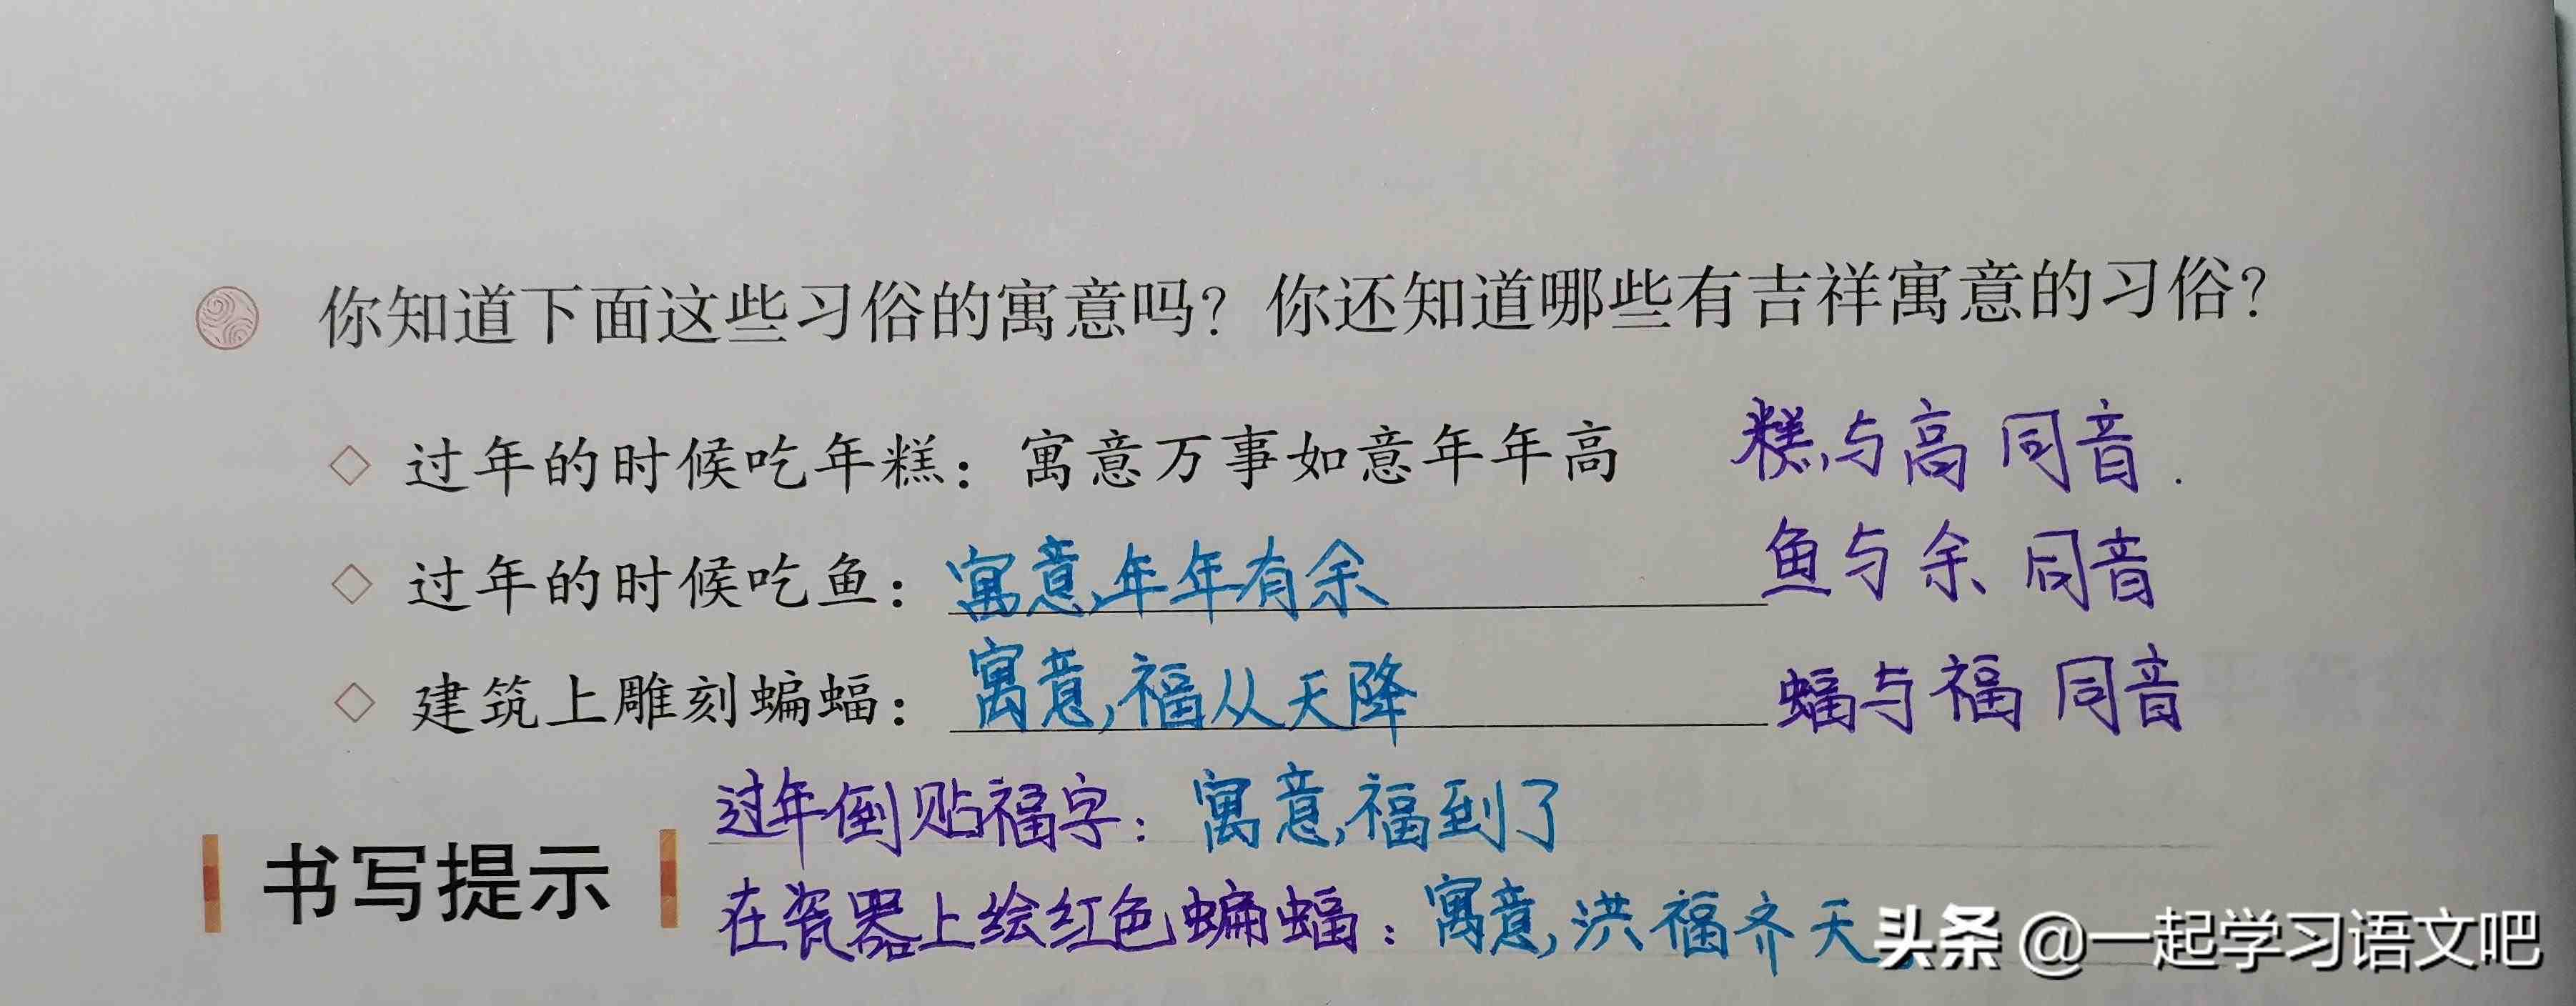 你知道下面这些习俗的寓意吗？你还知道哪些有吉祥寓意的习俗？
◇ 过年的时候吃年糕：寓意万事如意年年高 糕与高同音.
◇ 过年的时候吃鱼：寓意,年年有余 鱼与余同音
◇ 建筑上雕刻蝙蝠：寓意,福从天降 蝠与福同音
过年倒贴福字：寓意,福到了
书写提示
在瓷器上绘红色蝙蝠：寓意,洪福齐天
头条 @一起学习语文吧